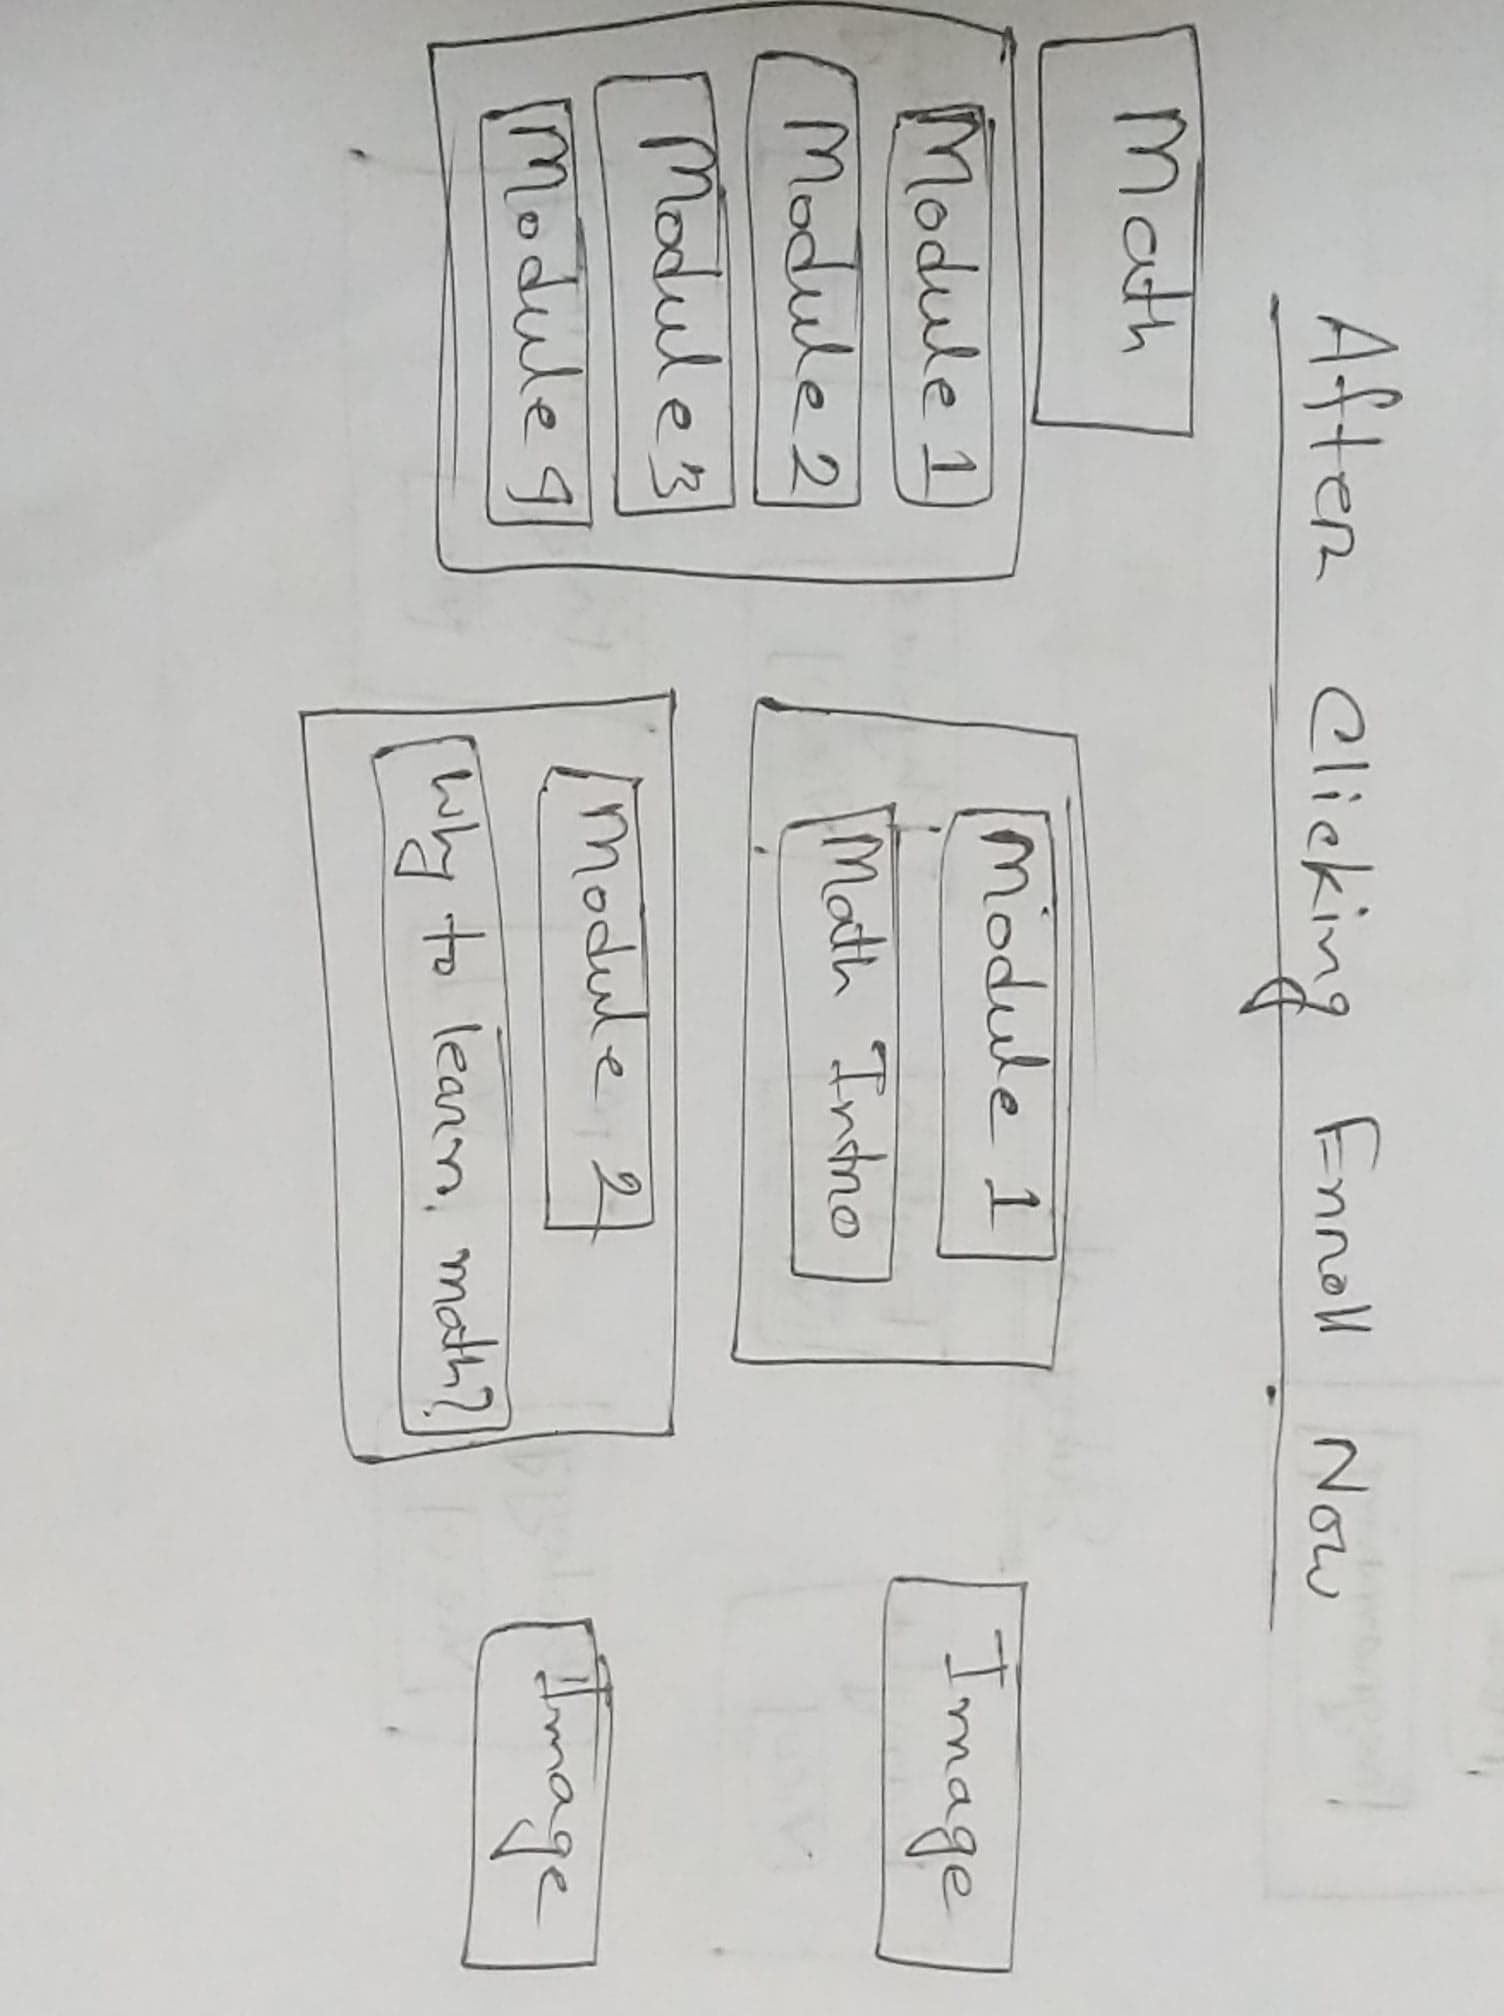 After Clicking Enroll Now
Math
Module 1
Module 2
Module 3
Module 4
Module 1
Math Intro
Module 2
Why to learn math?
Image
Image